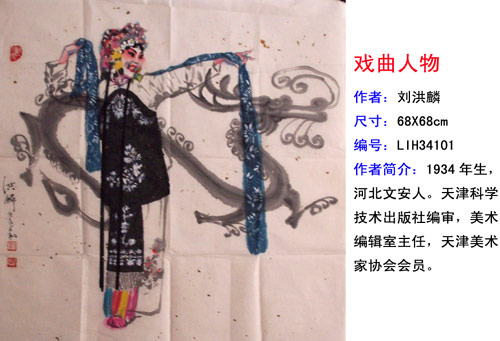 戏曲人物
作者：刘洪麟
尺寸：68X68cm
编号：LIH34101
作者简介：1934年生，
河北文安人。天津科学
技术出版社编审，美术
编辑室主任，天津美术
家协会会员。
洪麟